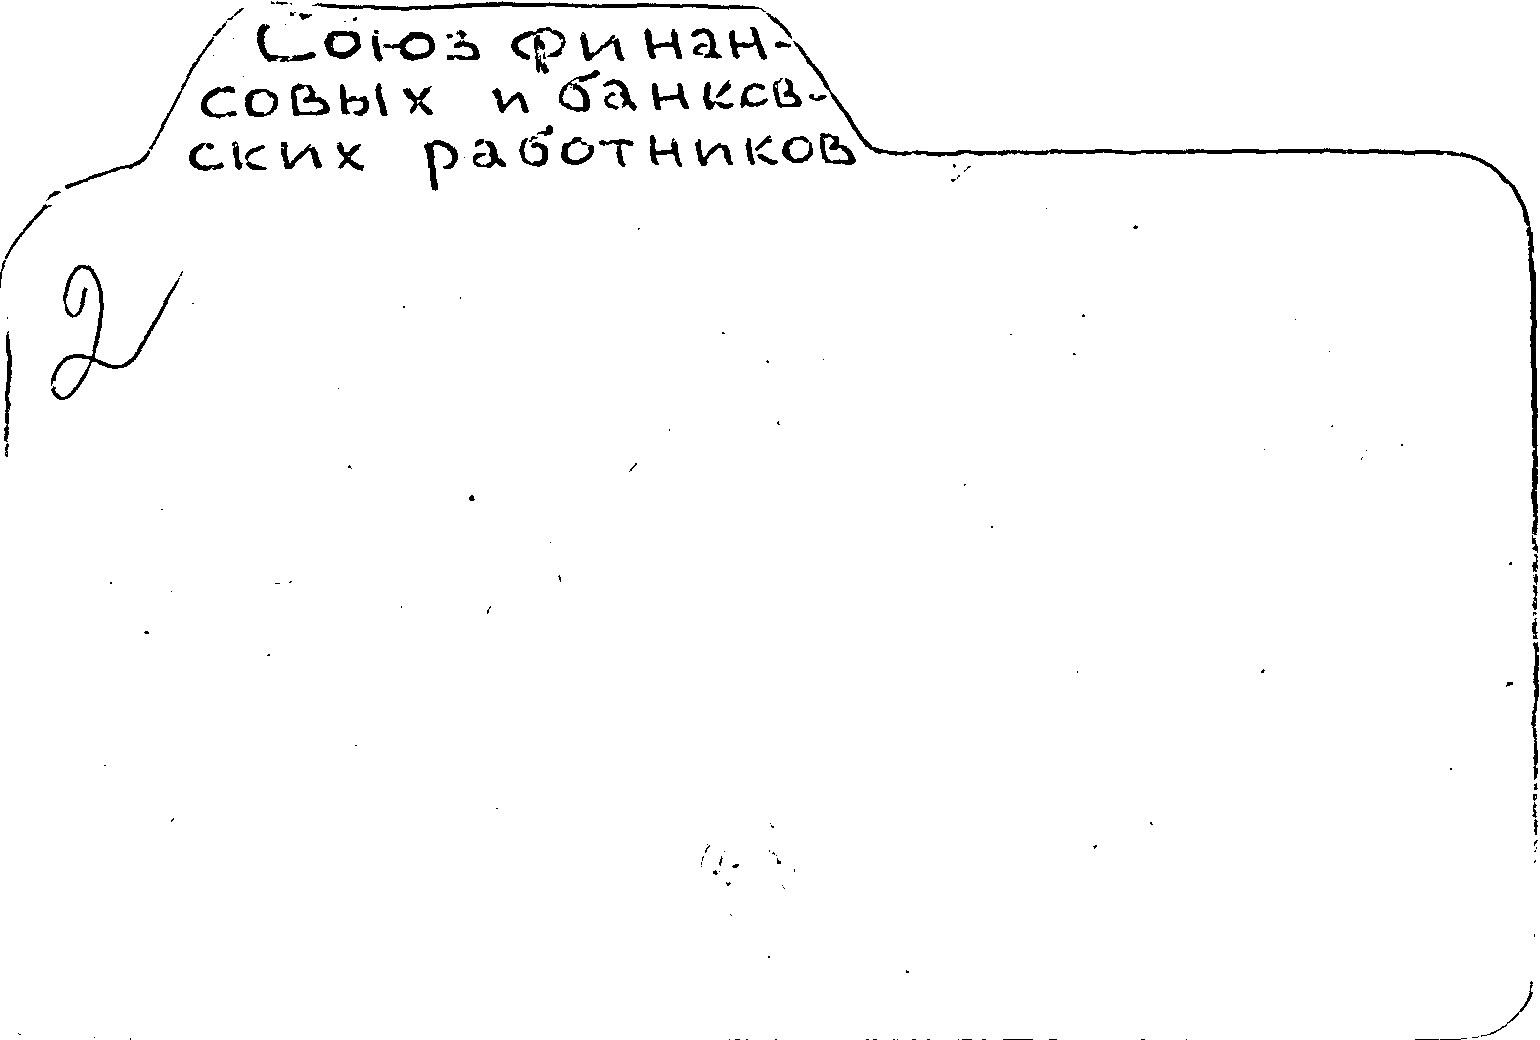 Союз финан-
совых и банков-
ских работников
2